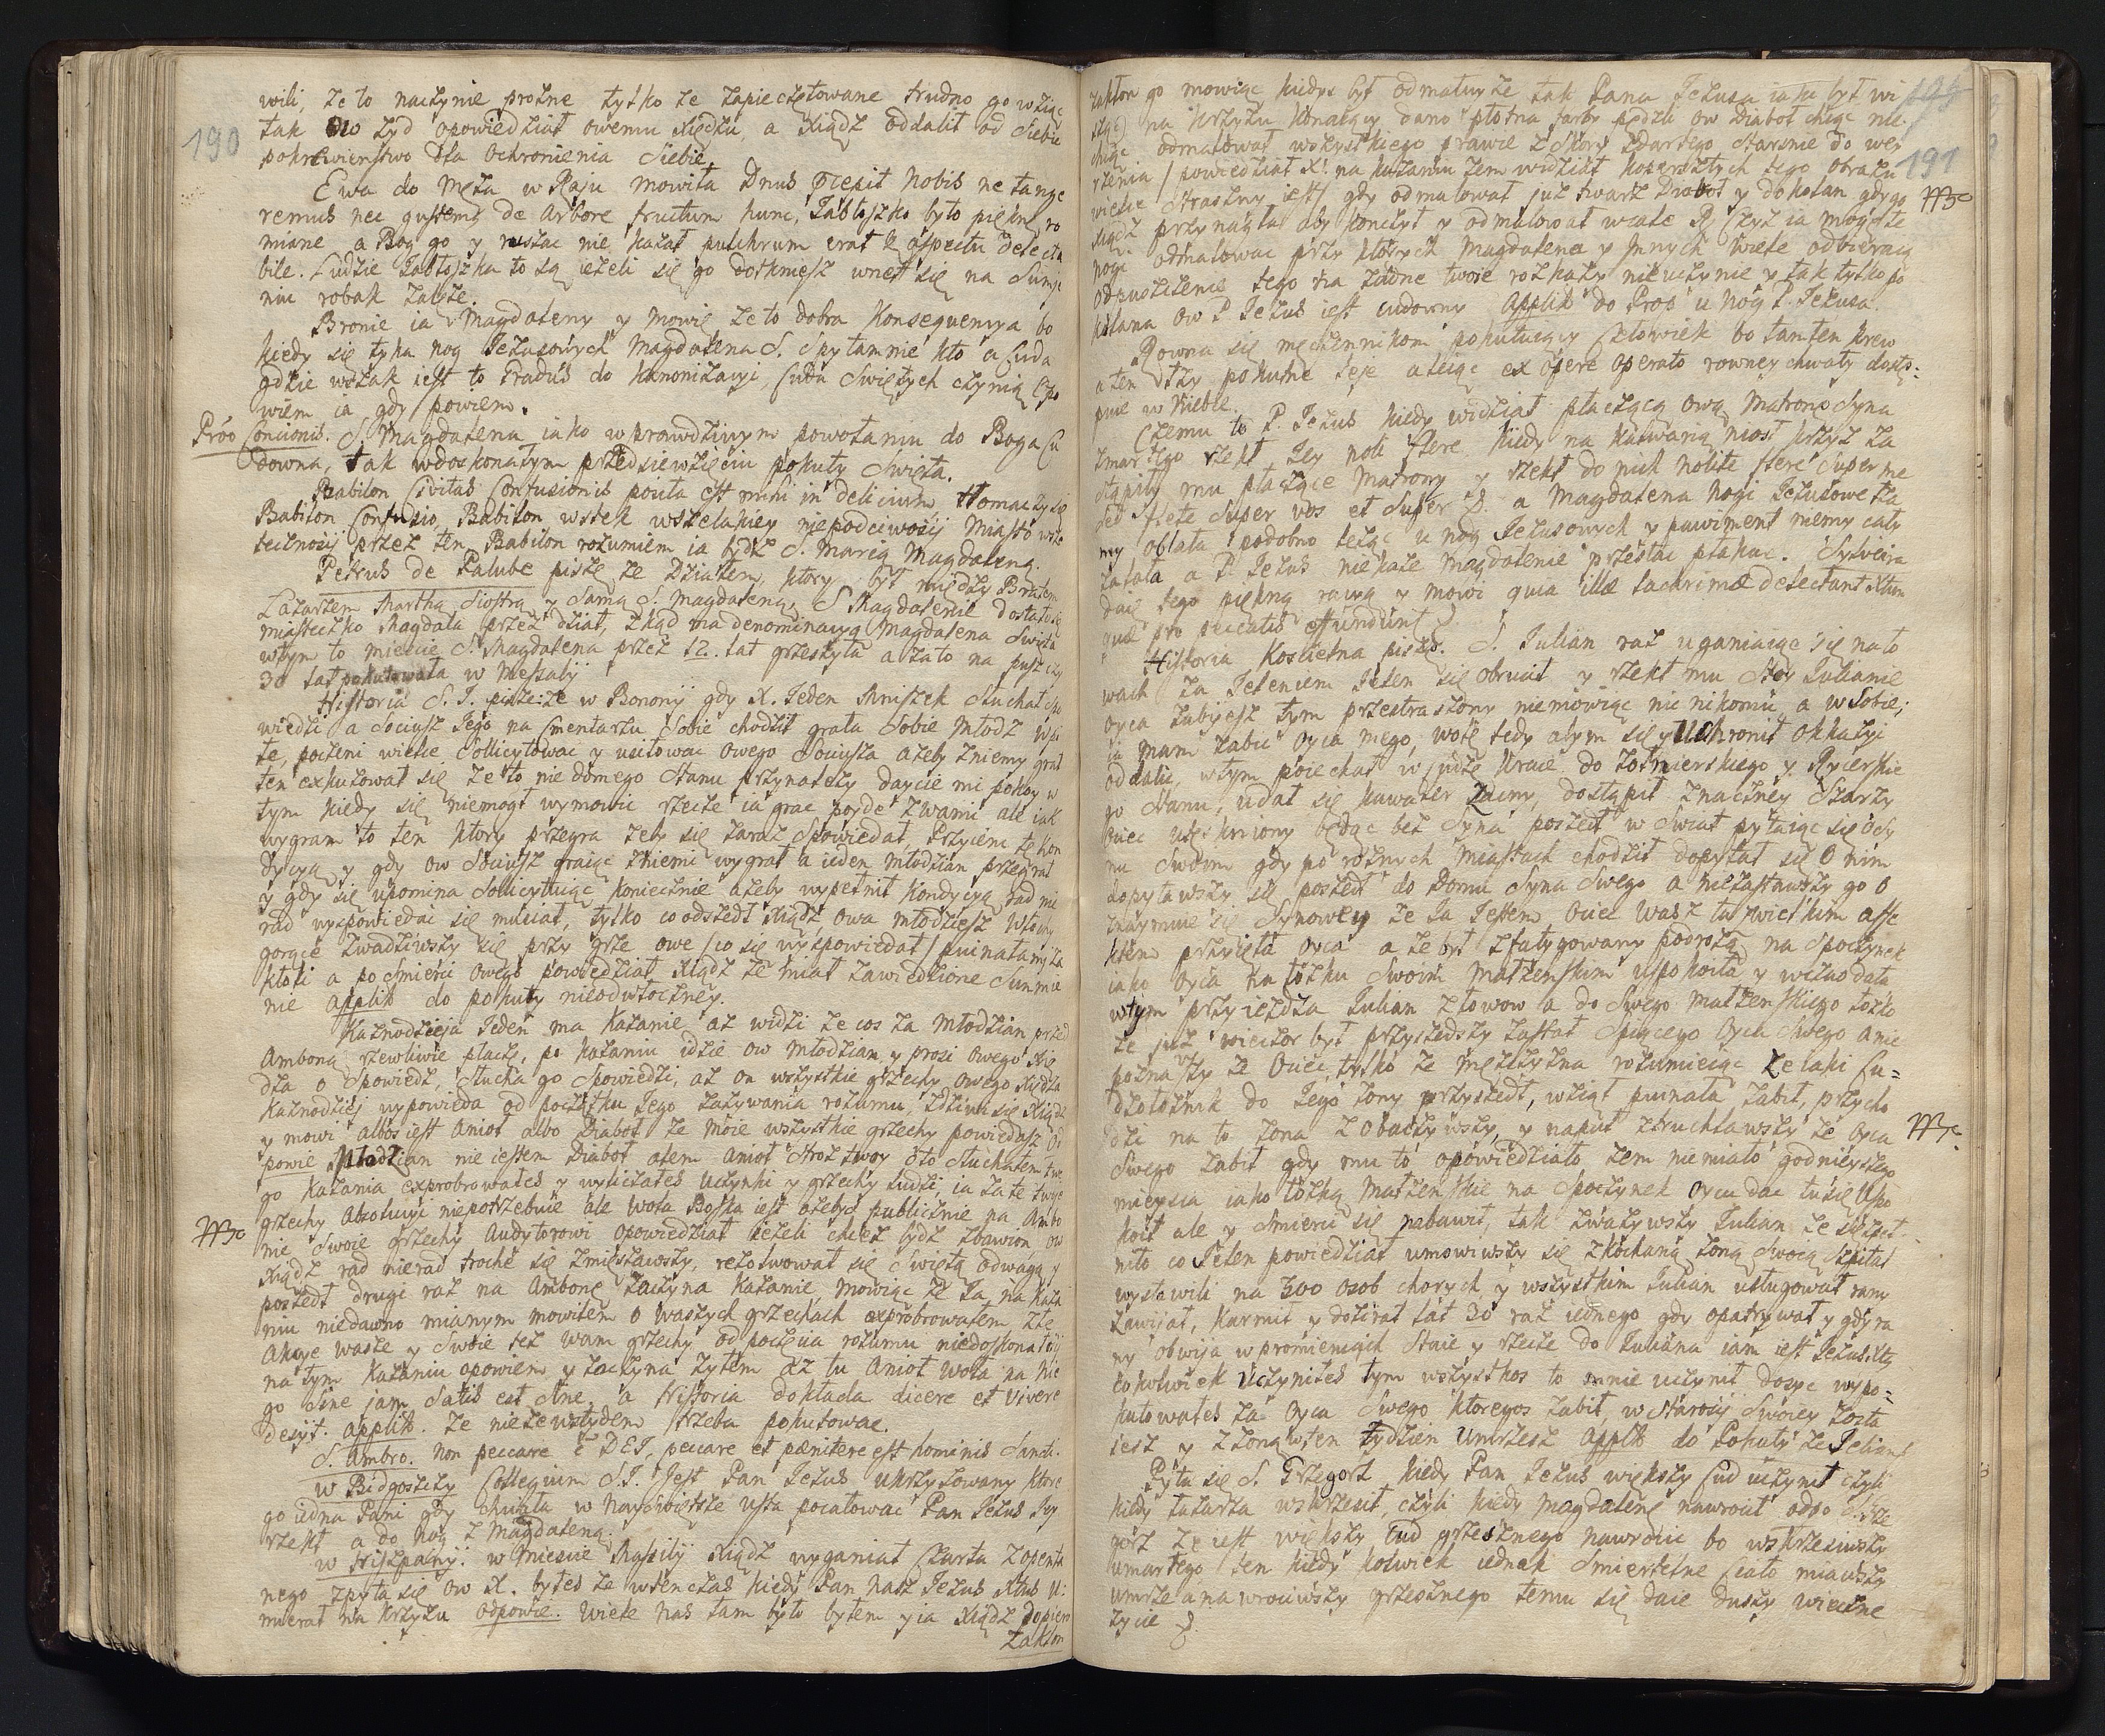 190
wili, że to naczynie prożne tylko że zapieczętowane trudno go wziąc
tak ow żyd opowiedział owemu xiędzu, a xiądz oddalił od siebie
pokrewieństwo dla ochronienia siebie.
Ewa do męża w Raju mowiła Dnus cepit nobis ne tange
remus nec gustem9 de arbore fructum hunc, Jabłoszko było piękn ro
miane a Bog go y ruszac nie kazał pulchrum erat & aspectu delecta
bile. Ludzie Jabłoszka to są ieżeli się go dotkniesz wnet się na Sumie
niu robak zalęże.
Bronie ia Magdaleny y mowię że to dobra konsequencya bo
kiedy się tyka nog Jezusowych Magdalena S. Spytam nie kto a Cuda
gdzie wszak iest to Gradus do kanonizacyi, Cuda Swiętych czynią Odpo
wiem ia gdy powiem.
Prōo Concionis. S. Magdalena iako w prawdziwym powołaniu do Boga Cu
downa, tak w doskonałym przedsięwzięciu pokuty Swięta.
Babilon Civitas Confusionis posita est mihi in delicium, tłomaczy się
Babilon Confusio, Babilon wstek wszelakiey niepodciwosij Miasto wsze
tecznosij przez ten Babilon rozumiem ia bydz S. Marią Magdaleną.
Petrus de Palube pisze że Działem, ktory był między Bratem
Lazarzem Marthą Siostrą y samą S. Magdaleną, S Magdalenie dostało się
miasteczko Magdala przez dział, zkąd ma denominacyą Magdalena Swięta
w tym to miescie S. Magdalena przez 12. lat grzeszyła a za to na puszczy
30 lat pokutowała w Messalij
Historia S. J. pisze: że w Bononij gdy X. Jeden Mniszek słuchał spo
wiedzi a Sociusz Jego na Cmentarzu Sobie chodził grała Sobie młodz W pi
łę, poczeni wielce Sollicytowac y usitowac owego Sociusza ażeby z niemy grał
ten exkuzował się że to nie do mego Stanu przynależy daycie mi pokoy w
tym kiedy się niemogł wymowic rzecze ia grac poydę z wami ale iak
wygram to ten ktory przegra żeby się zaraz Spowiedał, Przyieni tę kon
dycyą y gdy ow Sociusz graiąc zniemi wygrał a ieden młodzian przegrał
y gdy się upomina Sollicytuiąc koniecznie ażeby wypełnił kondycyą rad nie
rad wyspowiedac się musiał, tylko co odszedł xiądz, owa młodziesz Włochy
gorące zwadziwszy się przy grze owe /co się wyspowiedał/ puinałamy za
kłoli a po smierci owego powiedział xiądz że miał zawiedzione Sumnie
nie applik do pokuty nieodwłoczney.
Kaznodzieja Jeden ma Kazanie aż widzi że cos za młodzian przed
Amboną rzewliwie płacze, po kazaniu idzie ow młodzian y prosi owego Xię
dza o Spowiedz, słucha go Spowiedzi, aż on wszystkie grzechy owego xiędza
Kaznodziej wypowieda od początku Jego zażywania rozumu, zdziwi się xiądz
y mowi albos iest anioł albo Diaboł że moie wszystkie grzechy powiedasz Od
powie Młodzian nie iestem Diaboł alem anioł stroż twoy oto słuchałem twe
go Kazania exprobrowałes y wyliczałes uczynki y grzechy ludzi, ia za te twoie
grzechy absolucyi niepotrzebuie ale wola Boska iest ażebyś publicznie na Ambo
nie swoie grzechy Audytorowi opowiedział ieżeli chcesz bydz zbawion ow
Xiądz rad nierad trochę się zmięszawszy, rezolwował się swiętą odwagą y
poszedł drugi raz na Ambonę zaczyna Kazanie, mowiąc że Ja na kaza
niu niedawno mianym mowiłem o waszych grzechach exprobrowałem złe
akcye wasze y swoie też wam grzechy od poczęcia rozumu niedoskonałośij
na tym Kazaniu opowiem y zaczyna żyłem aż tu Anioł woła na nie
go sine jam satis est sine, a Historia dokłada dicere et vivere
desijt. applik. że nie ze wstydem trzeba pokutowac.
S. Ambro. non peccare ē DEI, peccare et pænitere est hominis Sancti.
w Bidgoszczy Collegium S. J. Jest Pan Jezus ukrzyżowany ktore
go iedna Pani gdy chciała w Nayswiętsze usta pocałowac Pan Jezus Jey
rzekł a do nog z Magdaleną.
w Hiszpanij. w miescie Massilij xiądz wyganiał Czarta z opęta
nego zpyta się ow X. byłes że wtenczas kiedy Pan nasz Jezus Xtus U:
mierał na krzyżu odpowie. wiele nas tam było byłem y ia xiądz dopiero
Zaklon
191
zaklon go mowiąc kiedys był odmaluyże tak Pana Jezusa iako był wi
sząc na krzyżu konaiący dano płotna farby pędzli ow Diaboł chcąc nie
chcąc odmalował wszystkiego prawie z skory zdartego starsnie do wey
rzenia /powiedział X. na kazaniu żem widział koperszłych tego obrazu
wielce straszny iest/ gdy odmalował już twarz Diaboł y do kolan gdy go
xiądz przynagla aby kończył y odmalował wcale R. Czyż ia mogę te
nogi odmalowac przy ktorych Magdalena y Jnnych wiele odbieraią
odpuszczenie tego na żadne twoie rozkazy nieuczynie y tak tylko po
kolana ow P Jezus iest cudowny applik do Prop u Nog P. Jezusa.
Rowna się męczennikom pokutuiący Człowiek bo tamten krew
a ten łzy pokutne leje a leiąc ex opere operato rowney chwały dostą:
puie w Niebie.
Czemu to P. Jezus kiedy widział płaczącą ową Matronę Syna
zmarłego rzekł Jey noli flere, kiedy na kalwarią niosł krzyż za
stąpiły mu płaczące Matrony y rzekł do nich nolite flere super me
sed flete super vos et super &. a Magdalena nogi Jezusowe łza
my oblała podobno leżąc u nog Jezusowych y pawiment niemy cały
zalała a P. Jezus niekaże Magdalenie przestac płakac. Sylveira
daie tego piękną racyą y mowi quia illæ lachrimæ delectant Xtum
quæ pro peccatis effundunt &.
Historia Koscielna pisze. S. Julian raz uganiaiąc się na ło
wach za Jeleniem Jelen się obrucił y rzekł mu stoy Julianie
oyca zabijesz tym przestraszony niemowiąc nic nikomu, a w Sobie;
ia mam zabic oyca mego, wolę tedy abym się uchronił okkazyi
oddalic, w tym poiechał w judze kraie do żołnierskiego y Rycerskie
go stanu, udał się kawaler zacny, dostąpił znaczney szarzy
ociec utęskniony będąc bez Syna poszedł w swiat pytaiąc się o Sy
nu swoim gdy po rożnych Miastach chodził dopytał się o nim
dopytawszy się poszedł do Domu Syna Swego a niezastawszy go o
znaymuie się Synowey że Ja Jestem Ociec wasz ta z wielkim affe
ktem przyięła oyca a że był zfatygowany podrożą na spoczynek
iako oyca na łożku swoim małżenskim uspokoiła y wczas dała
w tym przyieżdża Julian z łowow a do swego małżenskiego łożka
że już wieczor był przyszedszy zastał Spiącego oyca Swego a nie
poznawszy że Ociec, tylko że męszczyzna rozumieiąc że iaki Cu=
dzołożnik do Jego żony przyszedł, wziął puinała zabił, przycho
dzi na to żona zobaczywszy, y naput struchławszy że oyca
Swego zabił gdy mu to opowiedziała żem niemiała godnieyszego
mieysca iako łożko Małżenskie na spoczynek oycu dac tu się uspo
koił ale y smierci się nabawił, tak zważywszy Julian że się speł
niło co Jelen powiedział umowiwszy się z kochaną żoną swoią szpital
wystawili na 300 osob chorych y wszystkim Julian usługował rany
zawiiał, karmił y dozirał lat 30 raz iednego gdy opatrywał y gdy ra
ny obwija w promieniach staie y rzecze do Juliana iam iest Jezus Xtus
cokolwiek uczyniłes tym wszystkos to mnie uczynił dosyc wypo=
kutowałes za oyca swego ktoregos zabił, w starosij swoiey zosta
iesz y z żoną w ten tydzien umrzesz applik do Pokuty że Jelians
Pyta się S. Grzegorz kiedy Pan Jezus większy cud uczynił czyli
kiedy Łazarza wskrzesił, czyli kiedy Magdalenę nawrocił odpo S. Grze
gorz że iest większy cud grzesznego nawrocic bo wskrzesiwszy
umarłego ten kiedy kolwiek iednak smiertelne Ciało miawszy
umrze a nawrociwszy grzesznego temu się daie duszy wieczne
życie &.